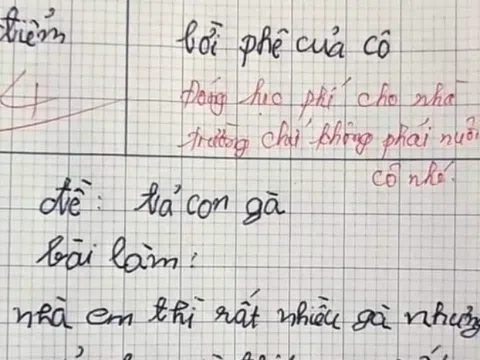 điểm
lời phê của cô
4
Đóng học phí cho nhà
trường chứ không phải nuôi
cô nhé.
đề: tả con gà
bài làm:
nhà em thì rất nhiều gà nhưng